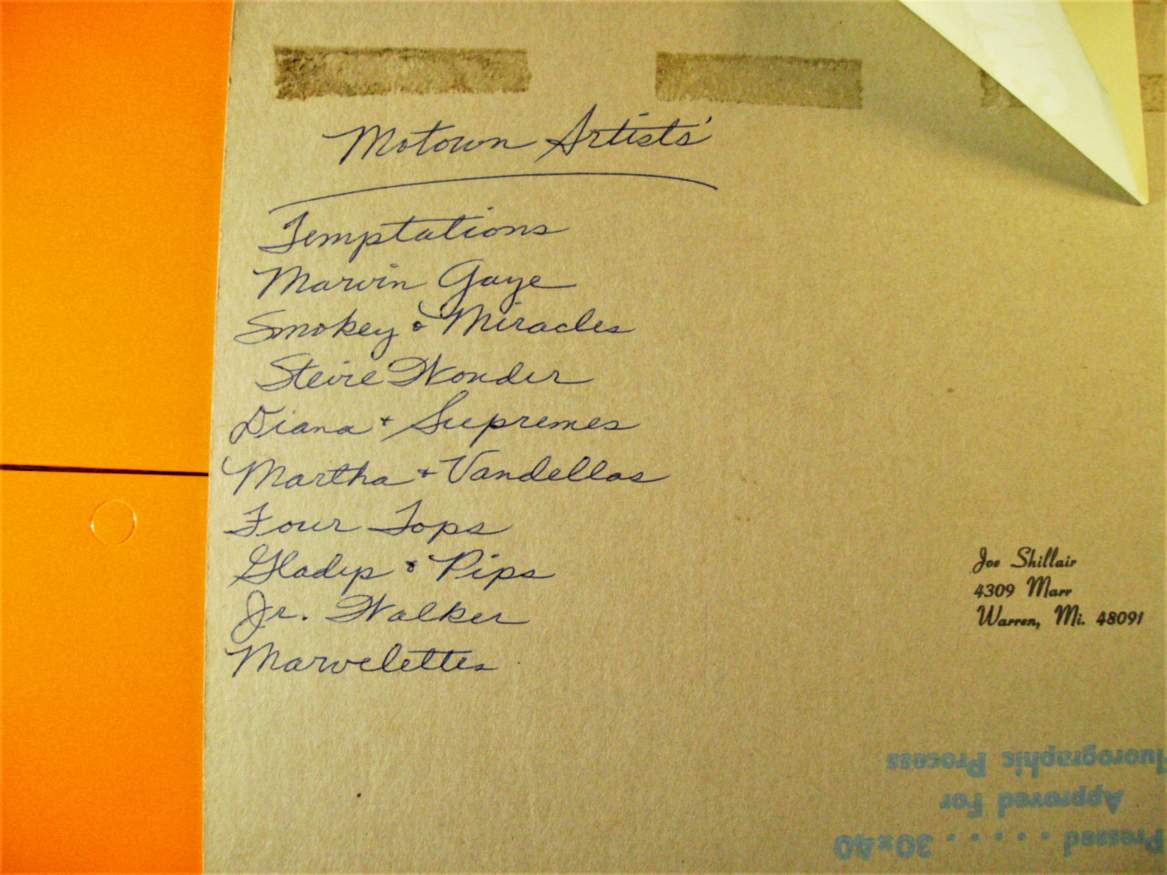 Motown Artists'
Temptations
Marvin Gaye
Smokey & Miracles
Stevie Wonder
Diana + Supremes
Martha + Vandellas
Four Tops
Gladys & Pips
Jr. Walker
Marvelettes
Joe Shillair
4309 Marr
Warren, Mi. 48091
Pressed . . . . . 30x40
Approved For
Process